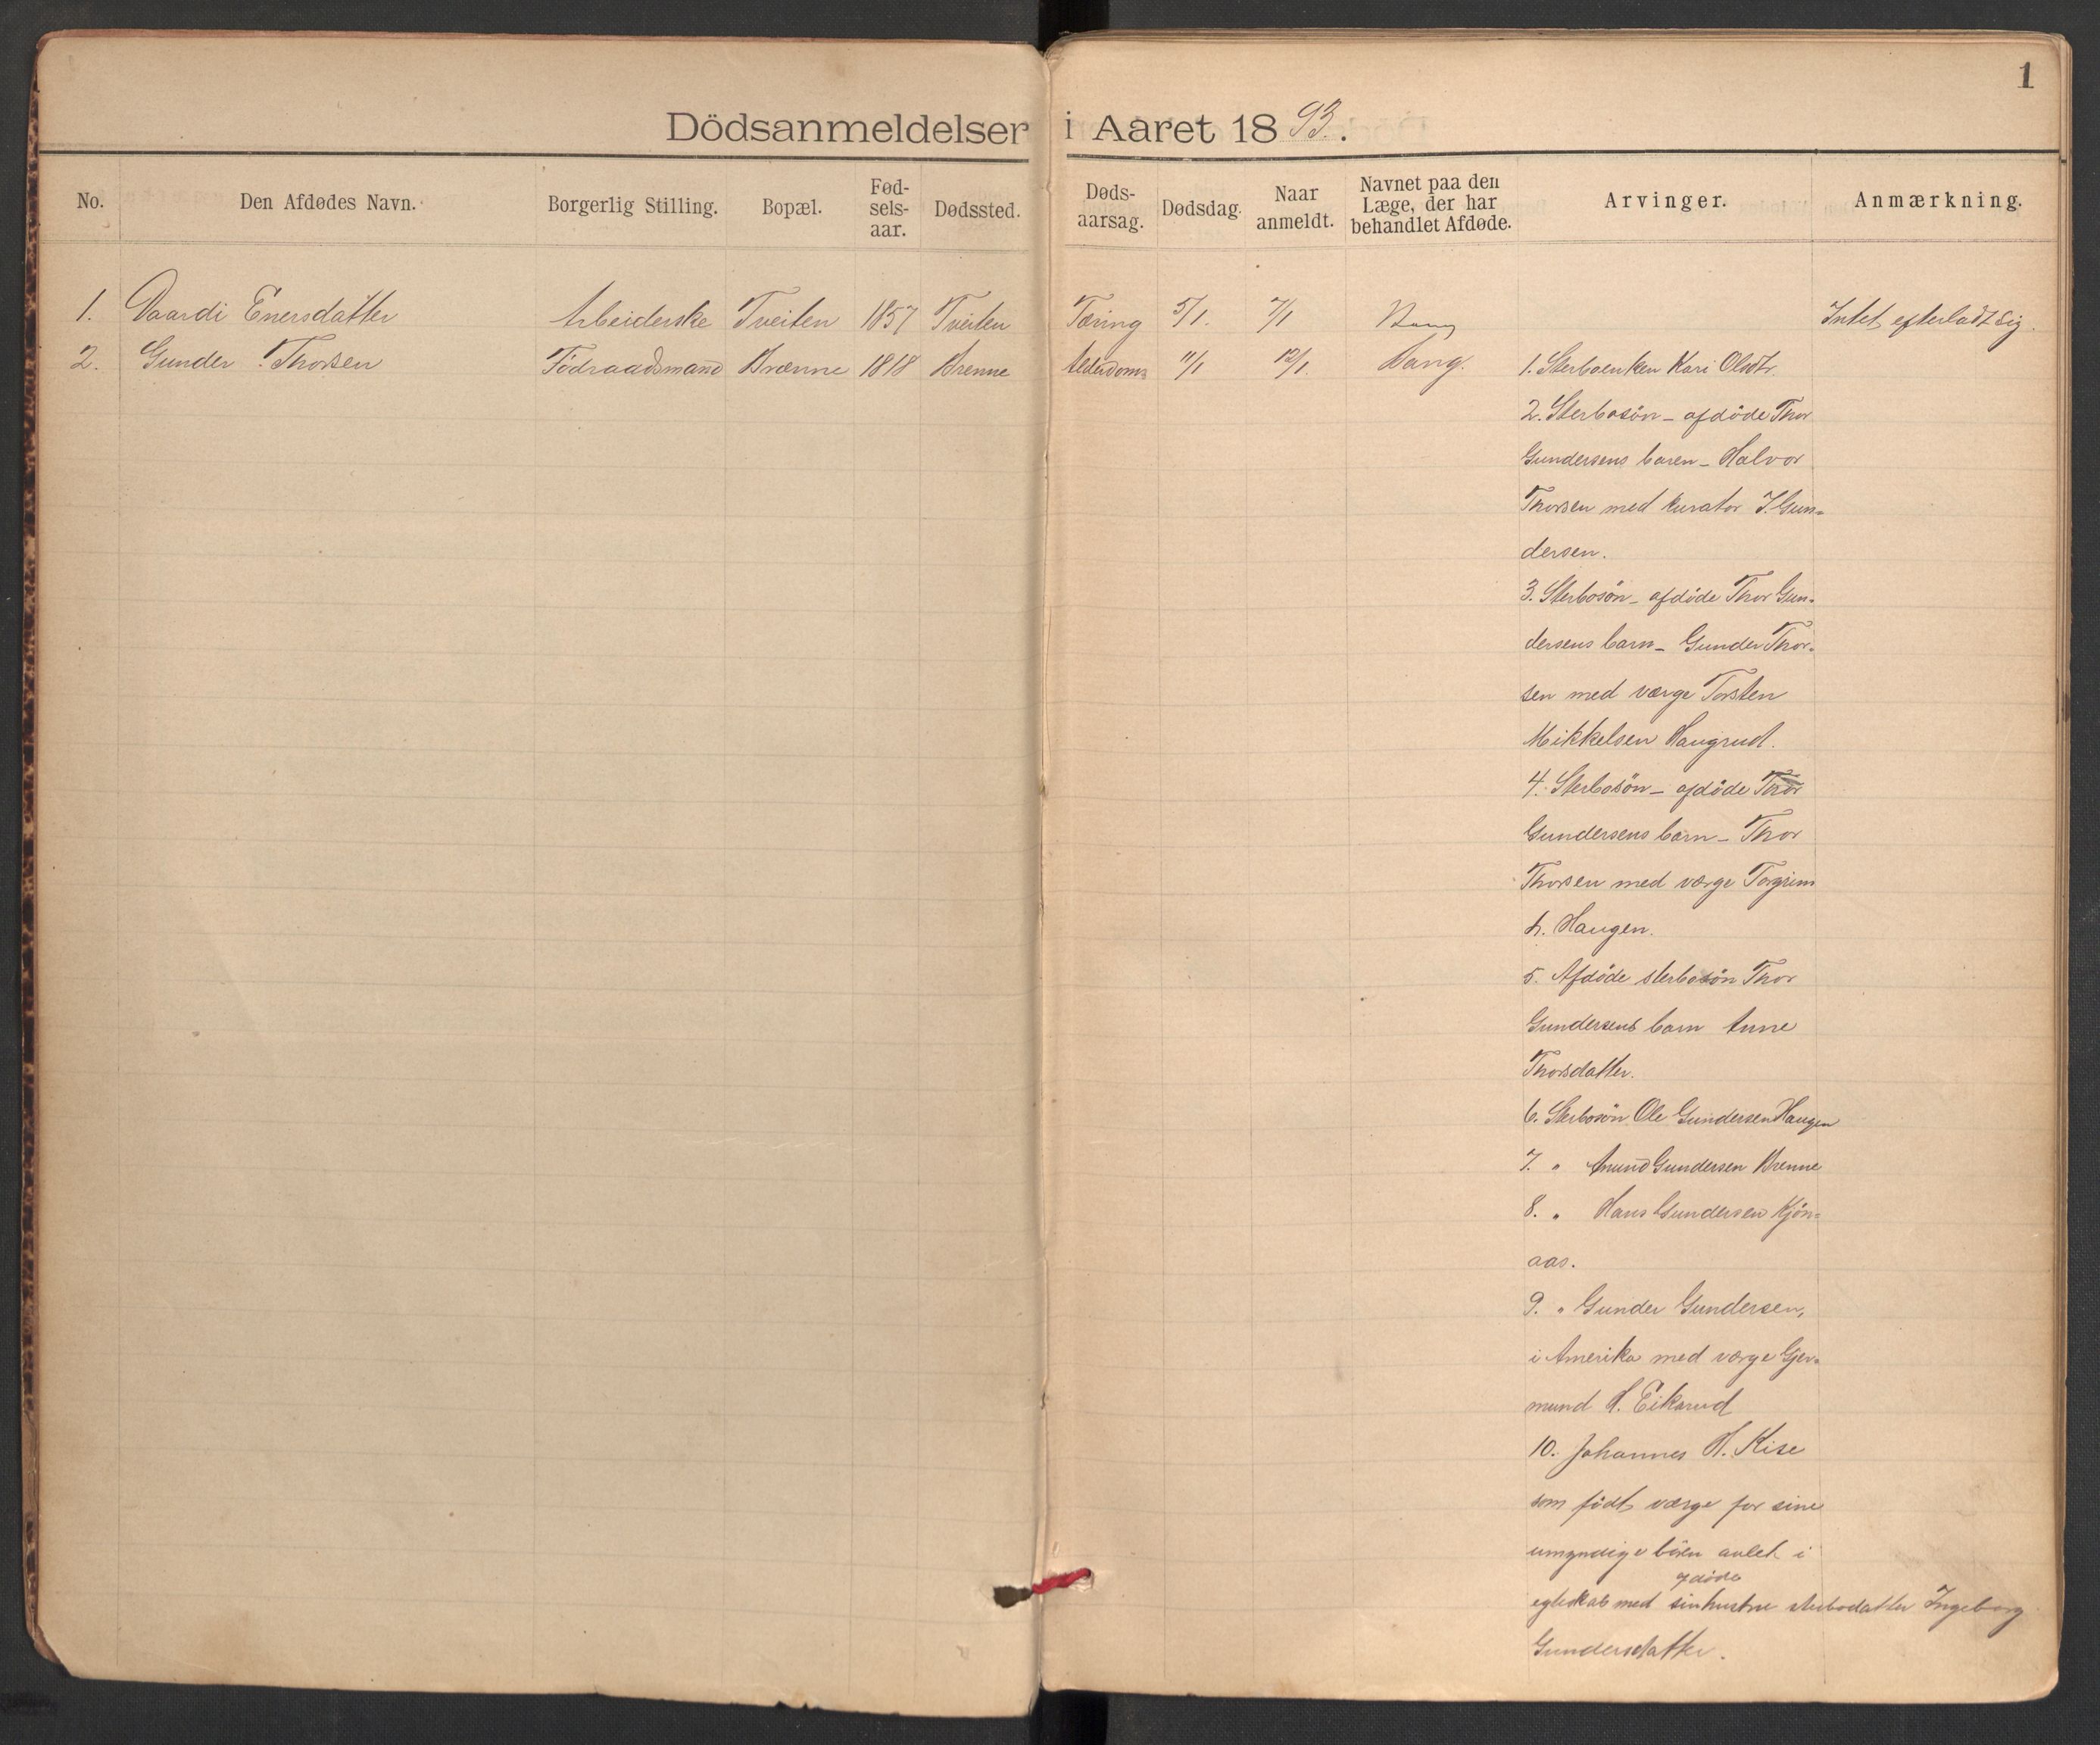 1
Dödsanmeldelser i Aaret 1893.
No. Den Afdødes Navn. Borgerlig Stilling. Bopæl. Fød-selsaar. Dødssted. Døds-aarsag. Dødsdag. Naar anmeldt. Navnet paa den Læge, der har behandlet Afdøde. Arvinger. Anmærkning.
1. Enersdatter Arbeiderske Tveiten 1857 Tveiten Tæring 5/1. 7/1 Intet efterladt sig.
2. Gunder Thorsen Födraadsmand Brænne 1818 Brenne Alderdom 11/1 12/1. Bang. 1. Sterboenken Kari Olsdtr.
2. Sterbosön – afdöde Thor
Gundersens baren – Halvor
Thorsen med kurator J. Gun-
dersen.
3. Sterbosön – afdöde Thor Gun-
dersens barn – Gunder Thor-
sen med værge Torsten
Mikkelsen Haugrud.
4. Sterbosön – afdöde Thor
Gundersens barn – Thor
Thorsen med værge Torgrim
A. Haugen.
5. Afdöde sterbosön Thor
Gundersens barn Anne
Thorsdatter.
6. Sterbosön Ole Gundersen Haugen
7. " Anund Gundersen Brenne
8. " Hans Gundersen Kjön-
aas.
9. " Gunder Gundersen,
i Amerika med værge Gjer-
mund H. Eikarud
10. Johannes H. Kise
som födt værge for sine
umyndige börn avlet i
egteskab med sin hustru afdöde sterbodatter Ingeborg
Gundersdatter.